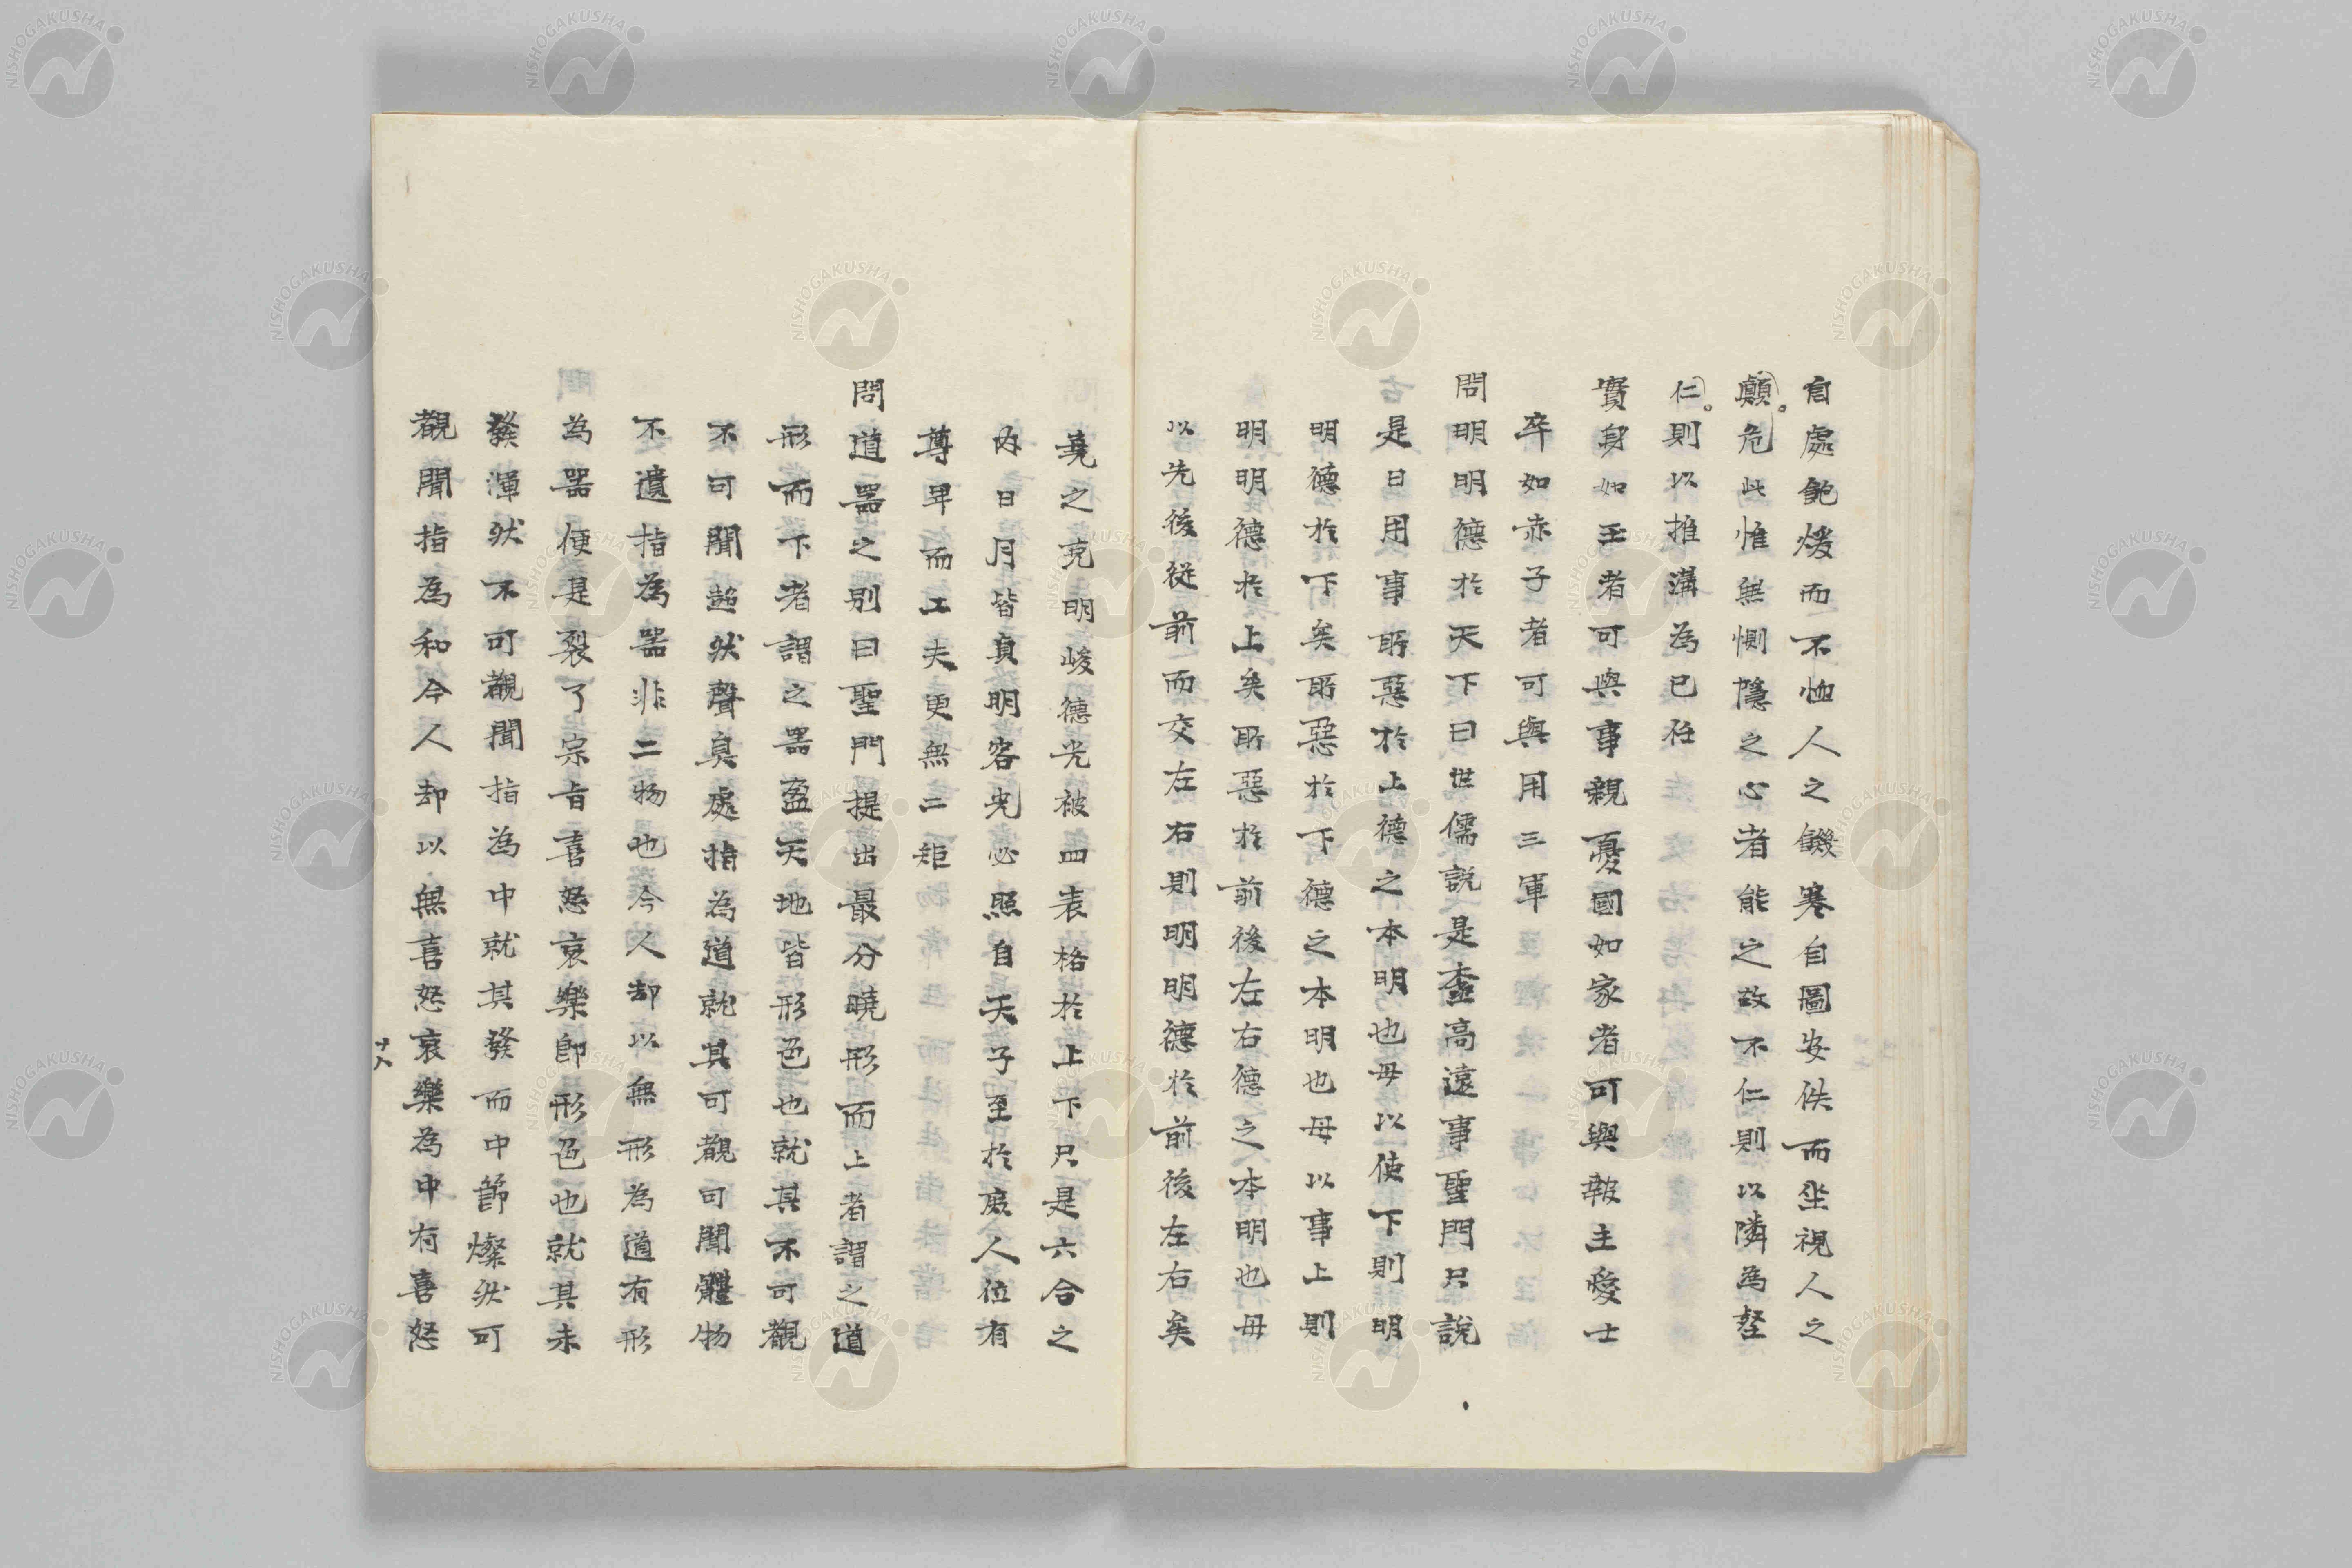 自處飽煖而不恤人之饑寒自圖安佚而坐視人之
顛危此惟無惻隱之心者能之故不仁則以隣為壑
仁則以推溝為已任
實身如王者可與事親憂國如家者可與報主愛士
卒如赤子者可與用三軍
問明明德於天下曰世儒說是查高遠事聖門只說
是日用事所惡於上德之本明也毋以使下則明
明德於下矣所惡於下德之本明也毋以事上則
明明德於上矣所惡於前後左右德之本明也毋
以先後從前而交左右則明明德於前後左右矣
堯之克明峻德光被四表格於上下只是六合之
內日月皆真明容光必照自天子至於庶人位有
尊卑而工夫更無二矩
問道器之別曰聖門提出最分曉形而上者謂之道
形而下者謂之器盈天地皆形色也就其不可觀
不可聞超然聲臭處指為道就其可觀可聞體物
不遺指為器非二物也今人却以無形為道有形
為器便是裂了宗旨喜怒哀樂即形色也就其未
發渾然不可觀聞指為中就其發而中節燦然可
觀聞指為和今人却以無喜怒哀樂為中有喜怒
十八
NISHOGAKUSHA